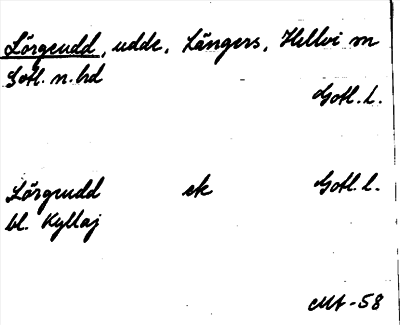 Lörgeudd, udde, Längers, Hellvi sn
Gotl. n. hd
Gotl. l.
Lörgeudd ek Gotl. l.
bl. Kyllaj
MA-58